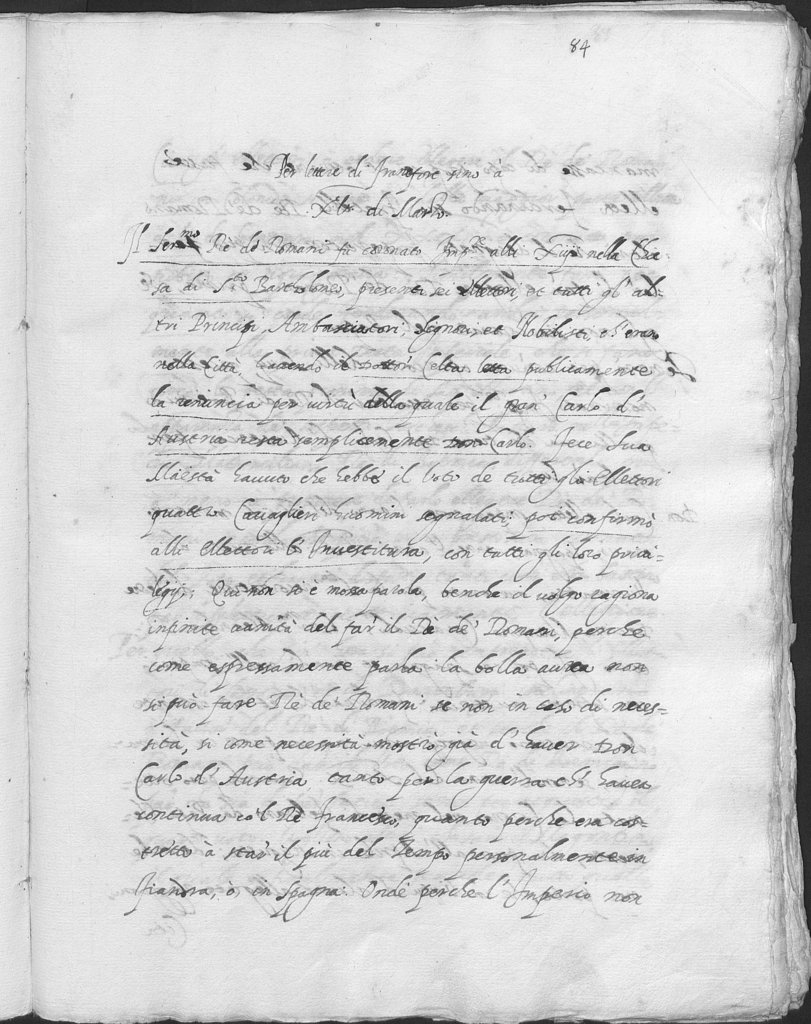 84
Per lettere di Francfort sino a
di Marzo
Il Ser.mo Re de Romani fu coronato alli Xiiij nella Chie=
sa di S.to Bartholomeo, presenti sei ellettori, et tutti gl' al=
tri Principi, Ambasciatori, Signori, et Nobilisti, ch' eran
nella Città, havendo il Dottor letta publicamente
la renuncia per virtù della quale il gran Carlo d'
Austria resta semplicemente Don Carlo. Fece Sua
Maestà havuto che hebbe il Voto de tutti gli Ellettori
quattro Cavaglieri huomini segnalati; poi confirmò
alli ellettori l' Investitura, con tutti gli loro privi=
legij; Qui non si è mossa parola, benche il volgo ragiona
infinite vanità del far il Rè de' Romani, perche
come espressamente parla la bolla aurea non
si può fare Rè de' Romani se non in caso di neces=
sità, si come necessità mostrò già d' haver Don
Carlo d' Austria, tanto per la guerra ch' havea
continua co 'l Rè Francesco, quanto perche era cos=
tretto à star il più del Tempo personalmente in
Fiandra, ò in Spagna: Onde perche l' Imperio non